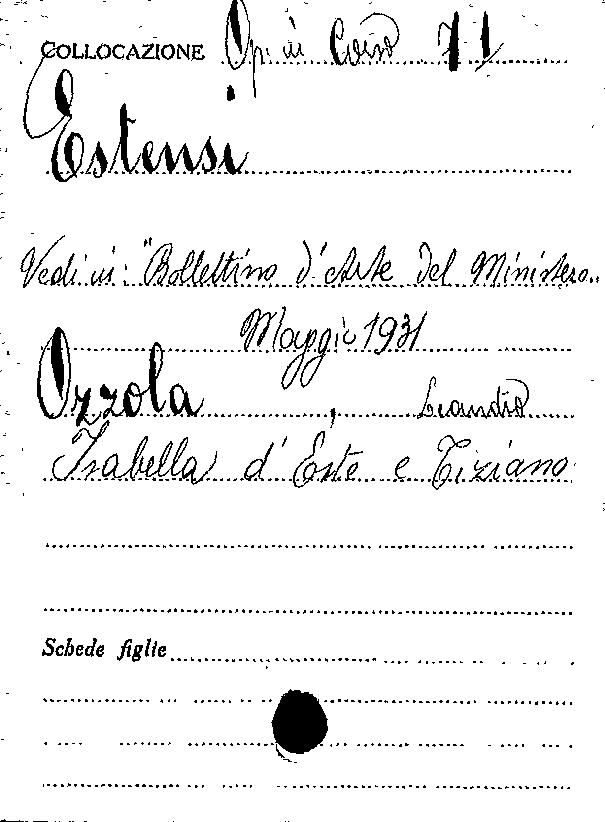 COLLOCAZIONE Op. in Corso 71
Estensi
Vedi in: "Bollettino d'Arte del Ministero..
Maggio 1931
Ozzola, Leandro
Isabella d'Este e Tiziano
Schede figlie